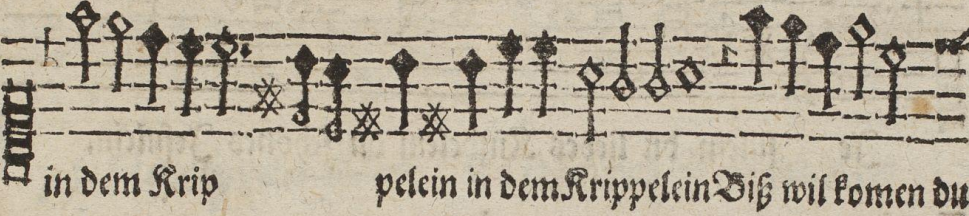 in dem Krip pelein in dem Krippelein Biß wil komen du